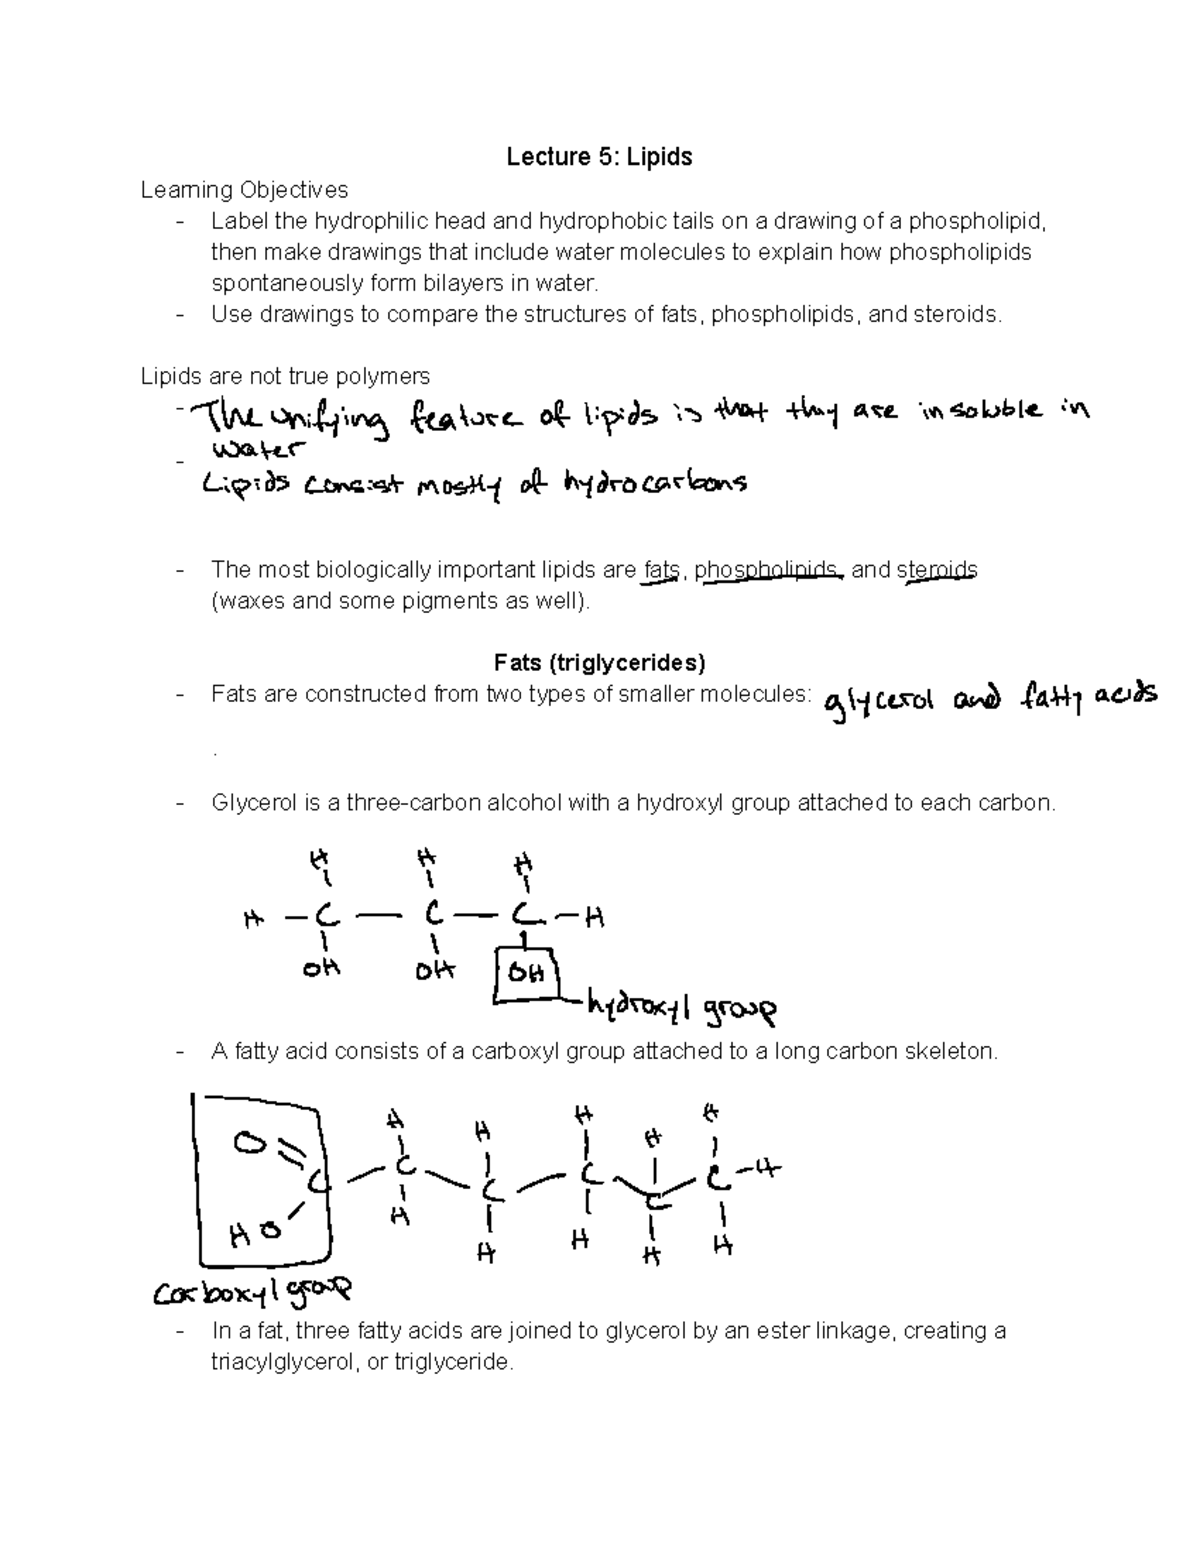 Lecture 5: Lipids
Learning Objectives
- Label the hydrophilic head and hydrophobic tails on a drawing of a phospholipid,
then make drawings that include water molecules to explain how phospholipids
spontaneously form bilayers in water.
- Use drawings to compare the structures of fats, phospholipids, and steroids.
Lipids are not true polymers
- The unifying feature of lipids is that they are insoluble in
water
-
Lipids consist mostly of hydrocarbons
- The most biologically important lipids are fats, phospholipids, and steroids
(waxes and some pigments as well).
Fats (triglycerides)
- Fats are constructed from two types of smaller molecules: glycerol and fatty acids
.
- Glycerol is a three-carbon alcohol with a hydroxyl group attached to each carbon.
H H H
H – C — C — C – H
OH OH OH
hydroxyl group
- A fatty acid consists of a carboxyl group attached to a long carbon skeleton.
H H H H H
O C C C C C C H
HO H H H H H
carboxyl group
- In a fat, three fatty acids are joined to glycerol by an ester linkage, creating a
triacylglycerol, or triglyceride.